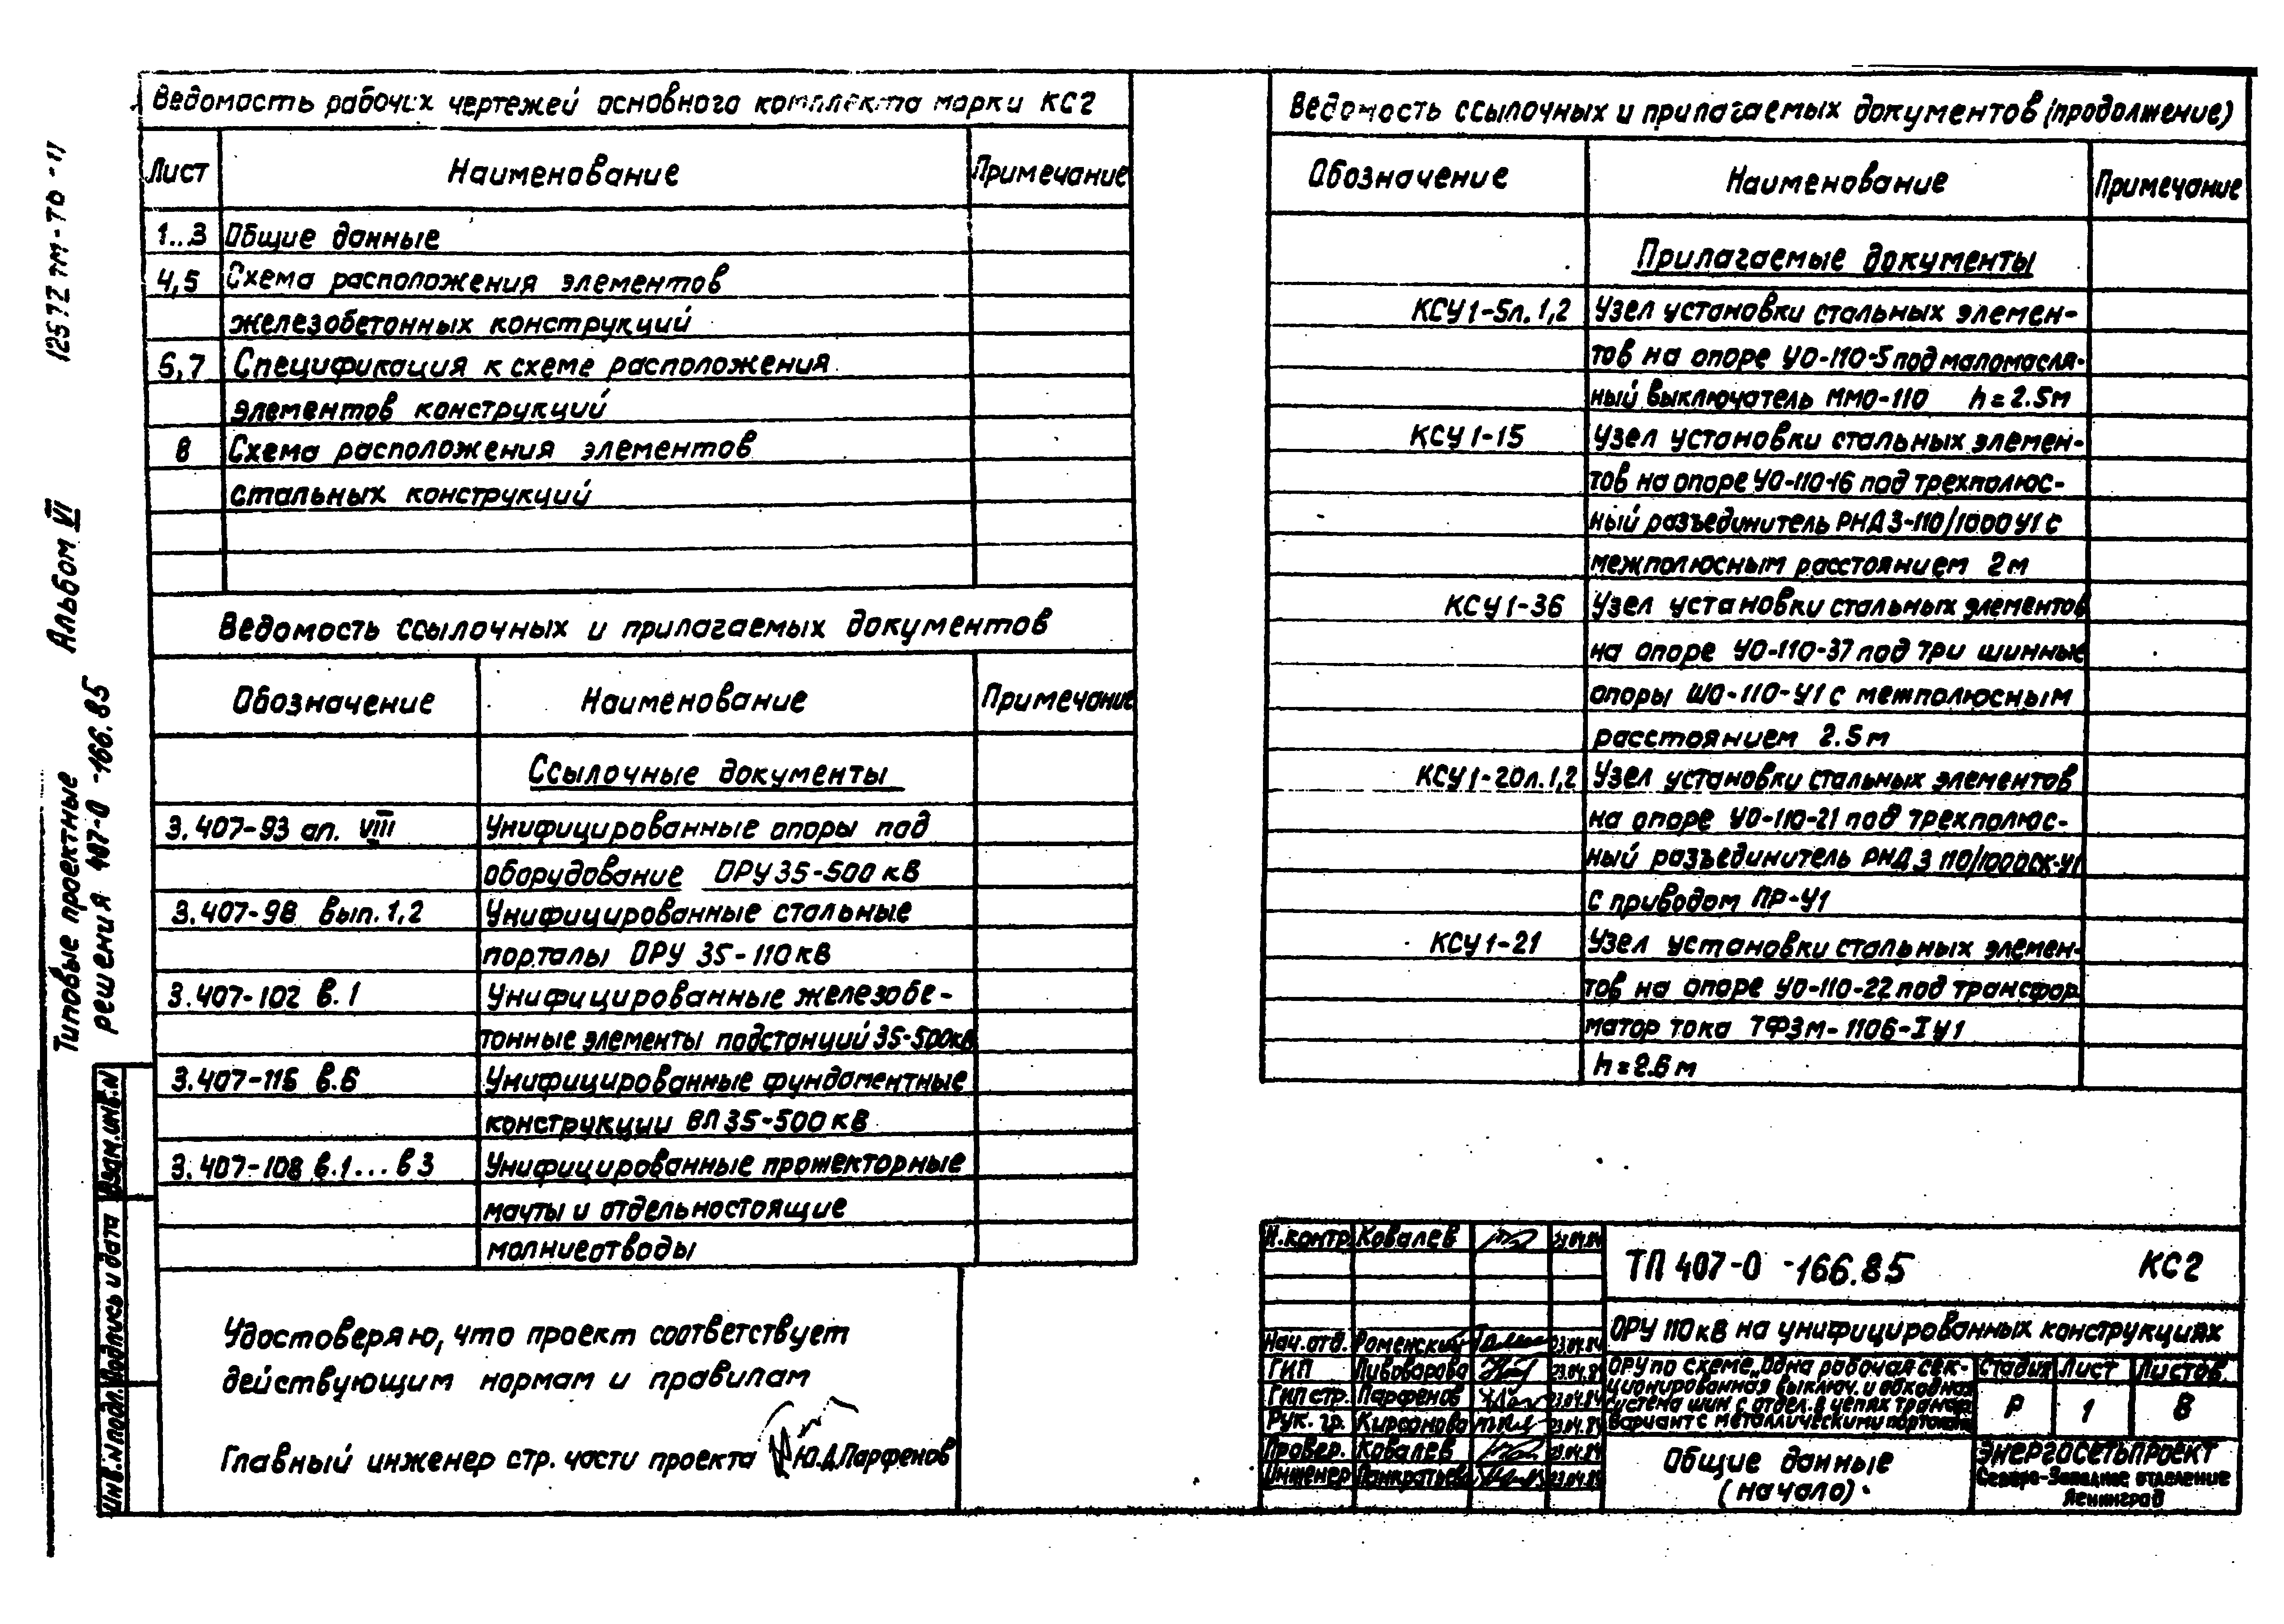 Ведомость рабочих чертежей основного комплекта марки КС2
Лист Наименование Примечание
1..3 Общие данные
4,5 Схема расположения элементов
железобетонных конструкций
6,7 Спецификация к схеме расположения
элементов конструкций
8 Схема расположения элементов
стальных конструкций
Ведомость ссылочных и прилагаемых документов
Обозначение Наименование Примечание
Ссылочные документы
3.407-93 ал. VIII Унифицированные опоры под
оборудование ОРУ 35-500 кВ
3.407-98 вып. 1,2 Унифицированные стальные
порталы ОРУ 35-110 кВ
3.407-102 в.1 Унифицированные железобе-
тонные элементы подстанций 35-500кв
3.407-115 в.6 Унифицированные фундаментные
конструкции ВЛ 35-500 кВ
3.407-108 в.1...в3 Унифицированные прожекторные
мачты и отдельностоящие
молниеотводы
Удостоверяю, что проект соответствует
действующим нормам и правилам
Главный инженер стр. части проекта Ю.Д.Парфенов
Ведомость ссылочных и прилагаемых документов (продолжение)
Обозначение Наименование Примечание
Прилагаемые документы
КСУ1-5л.1,2 Узел установки стальных элемен-
тов на опоре УО-110-5 под маломасля-
ный выключатель ММО-110 h=2.5м
КСУ1-15 Узел установки стальных элемен-
тов на опоре УО-110-16 под трехполюс-
ный разъединитель РНДЗ-110/1000 У1 с
межполюсным расстоянием 2м
КСУ1-36 Узел установки стальных элементов
на опоре УО-110-37 под три шинные
опоры ШО-110-У1 с межполюсным
расстоянием 2.5м
КСУ1-20л.1,2 Узел установки стальных элементов
на опоре УО-110-21 под трехполюс-
ный разъединитель РНДЗ 110/1000СК-У1
с приводом ПР-У1
КСУ1-21 Узел установки стальных элемен-
тов на опоре УО-110-22 под трансфор
матор тока ТФЗМ-110Б-I У1
h=2.6м
12572 тм-т0-11
Альбом VI
Типовые проектные
решения 407-0 -166.85
Взам.инв.N
Подпись и дата
Инв.N подл.
Н.контр. Ковалев
Нач.отд. Роменский 23.04.84
ГИП Пивоварова 23.04.84
ГИП стр. Парфенов 23.04.84
Рук. гр. Кирсанова 23.04.84
Провер. Ковалев 23.04.84
Инженер Панкратьева 23.04.84
ТП 407-0 -166.85 КС2
ОРУ 110кВ на унифицированных конструкциях
ОРУ по схеме „Одна рабочая сек-
ционированная выключ. и обходная
система шин с отдел. в цепях трансф.
Вариант с металлическими порталами
Стадия Лист Листов
Р 1 8
Общие данные
(начало)
ЭНЕРГОСЕТЬПРОЕКТ
Северо-Западное отделение
Ленинград